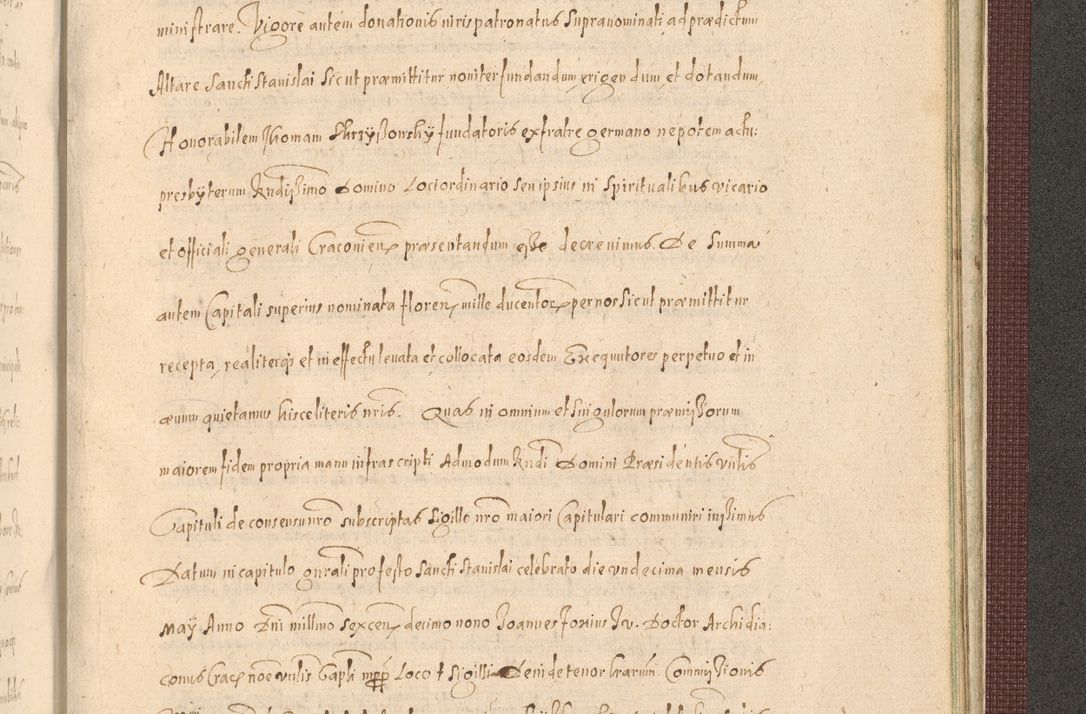 ministrare. Vigore autem donationis iuris patronatus supranominati ad prædictum
Altare Sancti Stanislai sicut præmittitur noviter fundandum, erigendum, et dotandum,
Honorabilem Thomam fundatoris ex fratre germano nepotem actu:
presbyterum Rndissimo Domino Loci ordinario seu ipsius in Spiritualibus vicario
et officiali generali Cracovien præsentandum esse decrevimus. De Summa
autem Capitali superius nominata floren mille ducentor per nos sicut præmittitur
recepta, realiterqz et in effectu levata et collocata eosdem Exequutores perpetuo et in
ævum quietamus hisce literis nris. Quas in omnium et singulorum præmissorum
maiorem fidem propria manu infrascripti Admodum Rndi Domini Præsidentis vnlis
Capituli de consensu nro subscriptas Sigillo nro maiori Capitulari communiri iussimus
Datum in capitulo gnrali pro festo Sancti Stanislai celebrato die vndecima mensis
May Anno Dni millmo sexcen decimo nono Joannes Foxius J.V. Doctor Archidia:
conus Crac noe vnlis Capli mpp Loco Sigilli Deinde tenor lrarum Commissionis